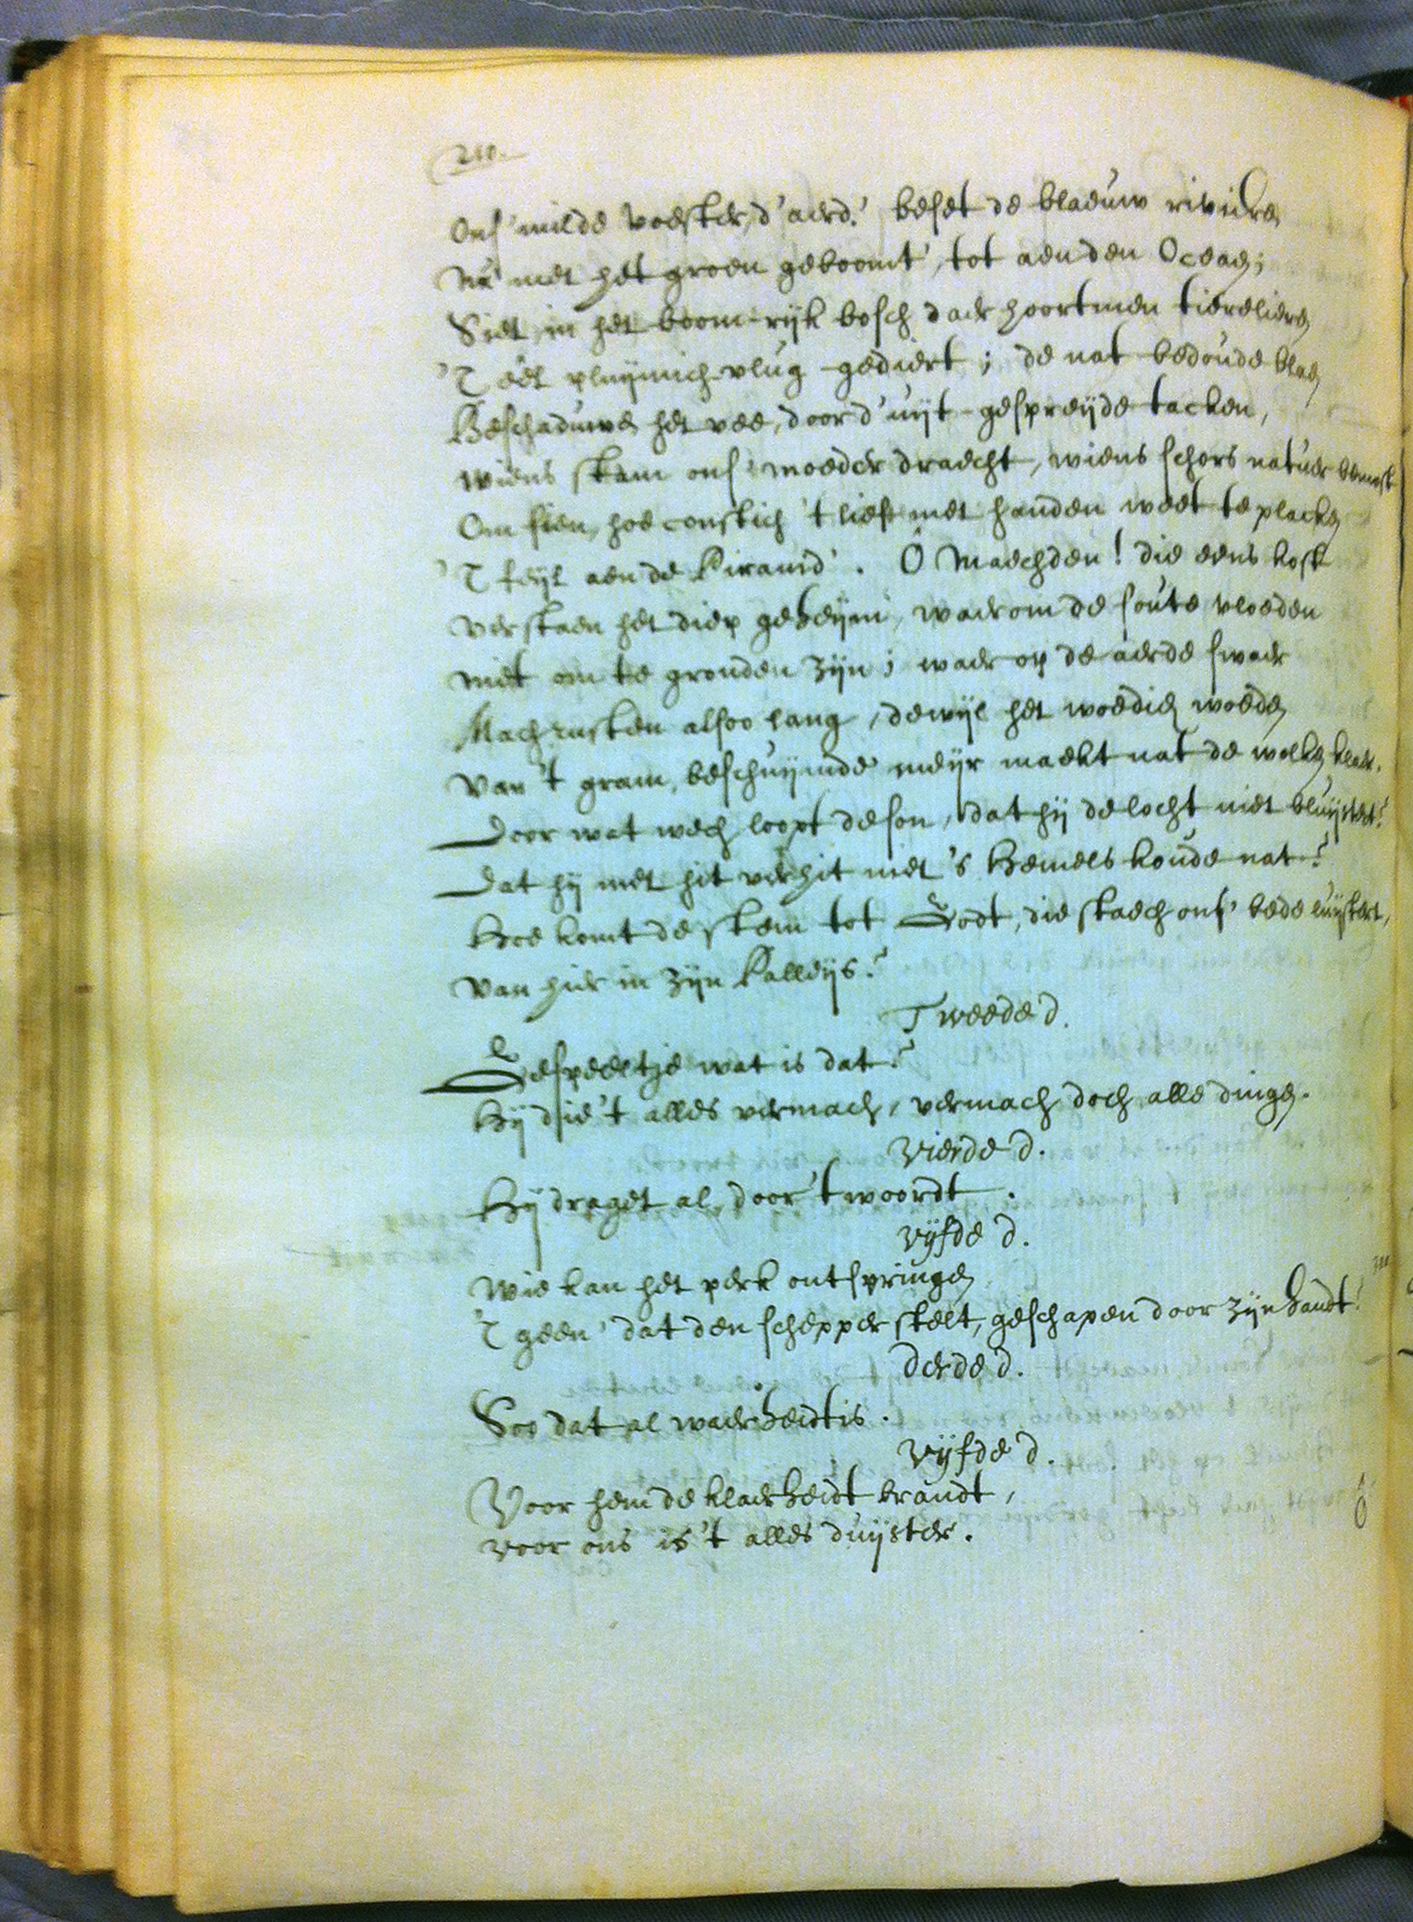 210.
Ons' milde voester, d'aerd.' beset de blaeuw rivieren
Nu met het groen geboomt', tot aen den Oceaen;
Siet, in het boom-rijk bosch daer hoortmen tierelieren
'T eêl pluijmich-vlug-gediert; de nat-bedoude blaen
Beschaduwen het vee, door d'uijt-gespreijde tacken,
Wiens stam ons' moeder draecht, wiens schors natuer bemost
Om sien, hoe constich 't lieft met handen weet te placken
'T feijl aen de Piramid'. Ô Maechden! die eens kost
Verstaen het diep geheijm, waerom de soute vloeden
Niet om te gronden zijn; waer op de aerde swaer
Mach rusten alsoo lang, dewijl het woedich woeden
Van 't gram, beschuijmde meijr maekt nat de wolken klaer.
Door wat wech loopt de son, dat hij de locht niet bluijstert?
Dat hij met hit verhit niet 's Hemels koude nat?
Hoe komt de stem tot Godt, die staech ons' bede luijstert,
Van hier in zijn Palleijs?
Tweede d.
Gespeeltje wat is dat?
Hij die 't alles vermach, vermach doch alle dingen.
Vierde d.
Hij draget al door 't woordt.
Vijfde d.
Wie kan het perk ontspringen
'T geen' dat den schepper stelt, geschapen door zijn handt?
Derde d.
Soo dat al waerheidt is.
Vijfde d.
Voor hem de klaerheidt brandt,
voor ons is 't alles duijster.